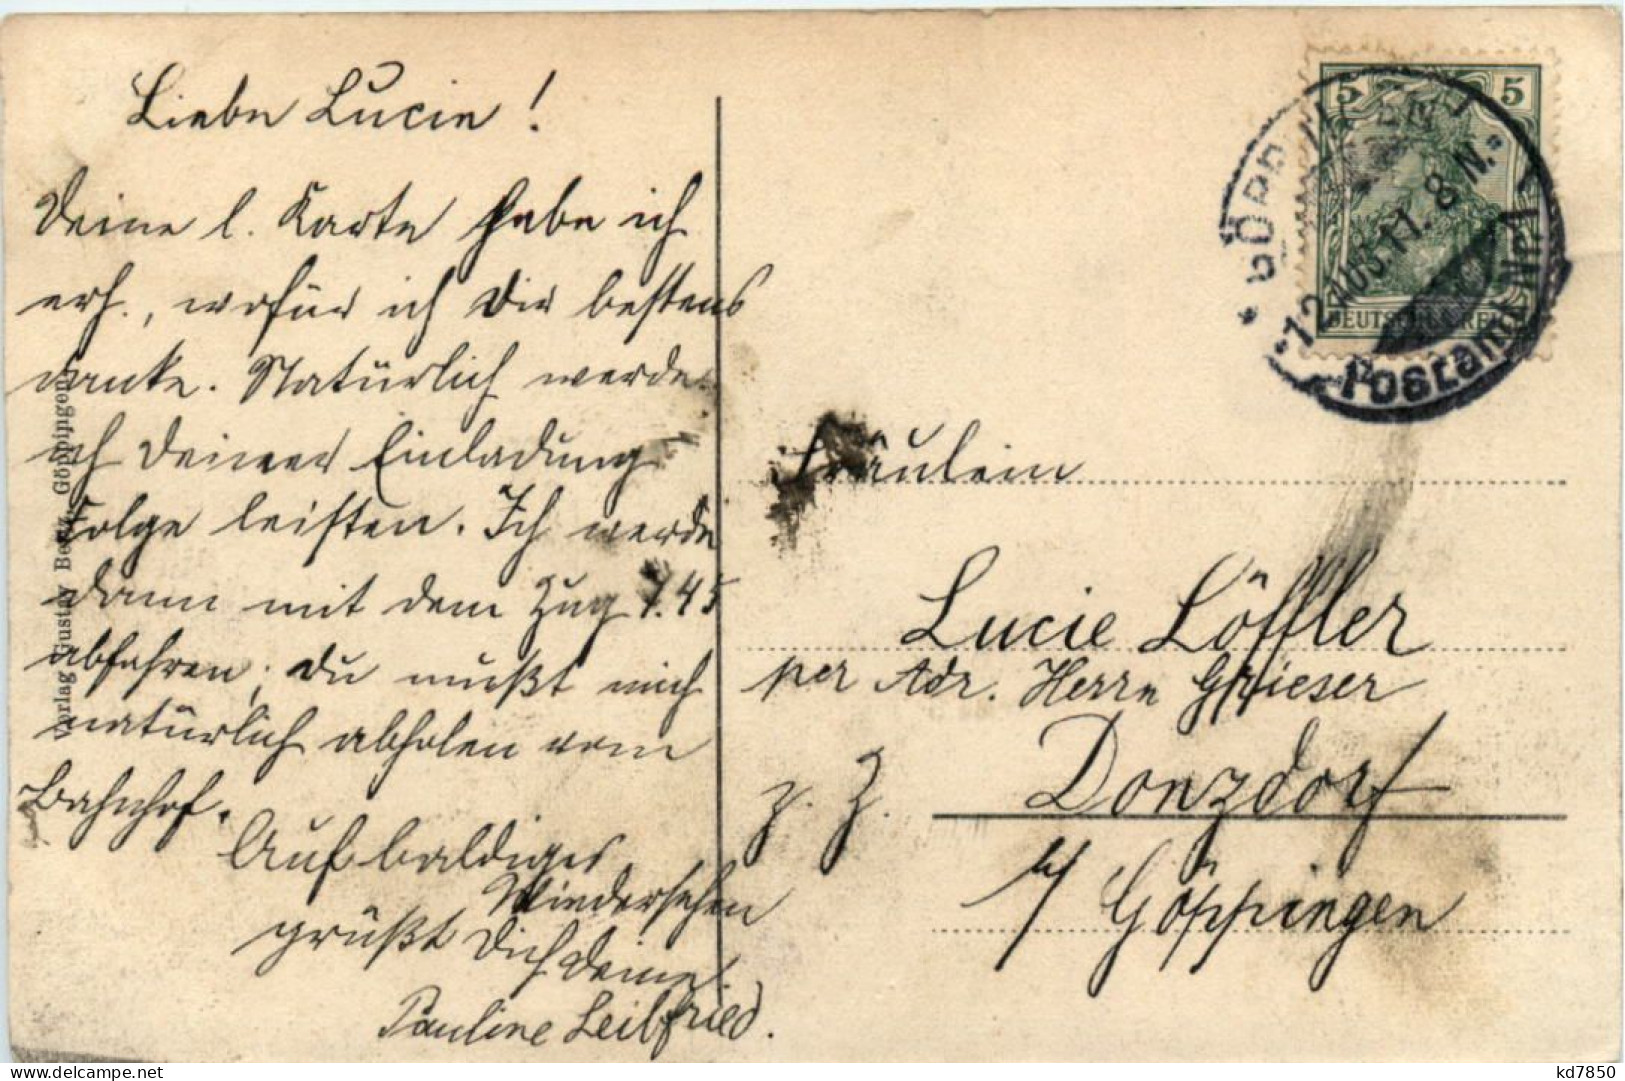 Liebe Lucie!
Deine l. Karte habe ich
erh., wofür ich Dir bestens
danke. Natürlich werde
ich Deiner Einladung
Folge leisten. Ich werde
dann mit dem Zug 1.45
abfahren; Du mußt mich
natürlich abholen vom
Bahnhof.
Auf baldiges
Wiedersehen
grüßt Dich Deine
Pauline Leibfried.
Verlag Gustav Göppingen
GÖPPINGEN
12 AUG. 11. 8 N.
Postamt Nr. 1
5 5
DEUTSCHES REICH
Fräulein
Lucie Löffler
per Adr. Herrn Grieser
z. Z. Donzdorf
b/ Göppingen
kd7850